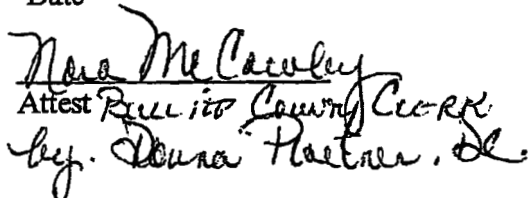 Date
Nora McCawley
Attest Bullitt County Clerk
by. Donna Plaetner, DC.